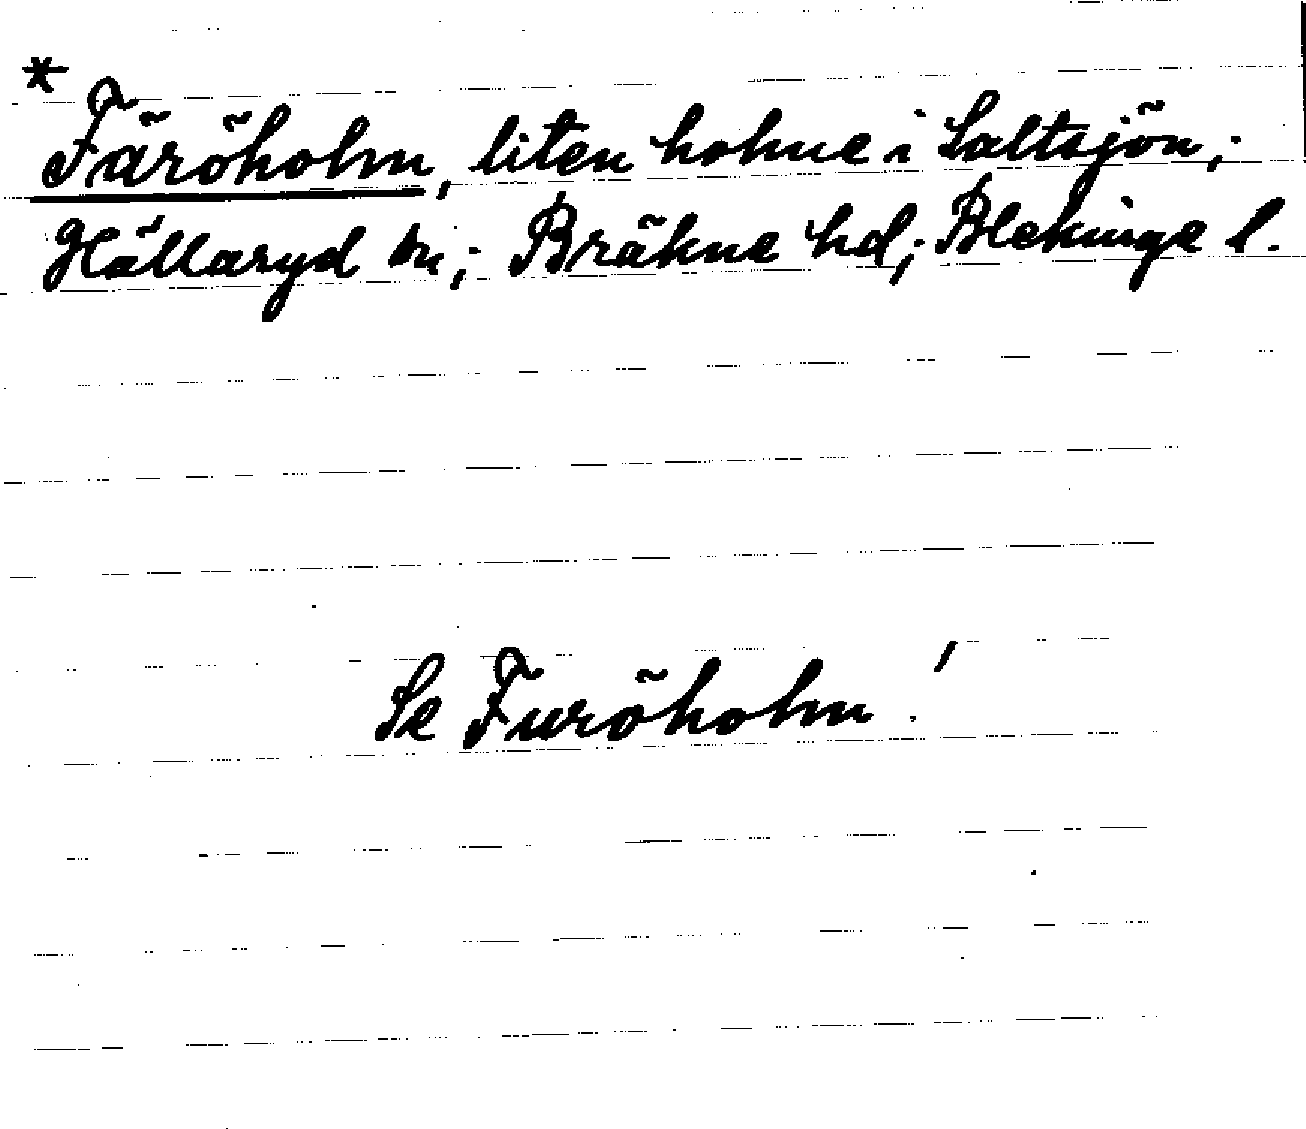 * Färöholm, liten holme i Saltsjön;
Hällaryd sn; Bräkne hd; Blekinge l.
Se Furöholm!